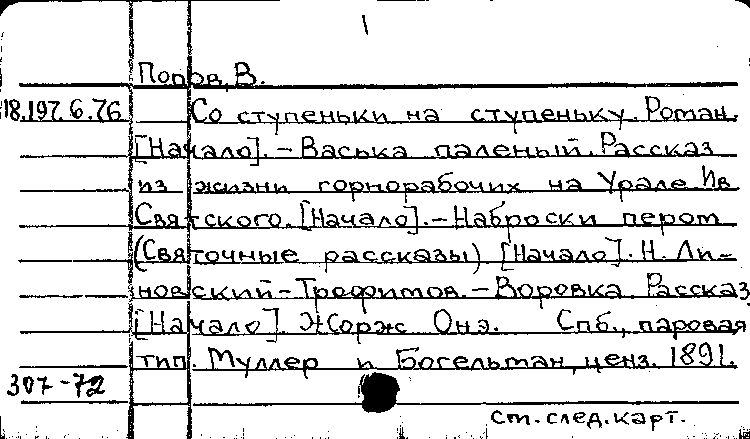 1
Попов, В.
18.197.6.76 Со ступеньки на ступеньку. Роман.
[Начало]. - Васька паленый. Рассказ
из жизни горнорабочих на Урале Ив
Святского. [Начало]. - Наброски пером
(Святочные рассказы) [Начало]. Н. Ли-
новский-Трофимов. - Воровка. Рассказ
[Начало]. Жорж Онэ. Спб., паровая
тип. Муллер и Богельман, ценз. 1891.
307-72
см. след. карт.